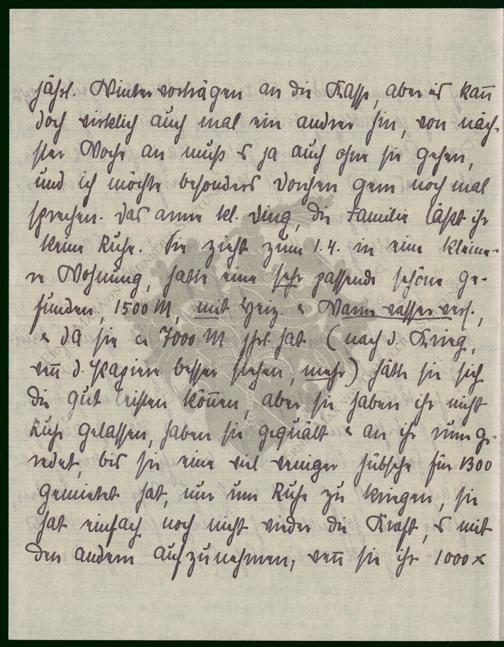 jährl. Wintervorträgen an die Kasse, aber es kañ
doch wirklich auch mal ein andrer hin, von näch-
ster Woche an muß es ja auch ohne sie gehen,
und ich möchte besonders gern noch mal
sprechen. Das arme kl. Ding, die Familie läßt ihr
keine Ruhe. Sie zieht zum 1.4. in eine kleine-
re Wohnung, hatte eine sehr passende schöne ge-
funden, 1500 M, mit Heiz. & Warmwasservers.,
& da sie ca 7000 M jhrl. hat (nach d. Krieg,
weñ d. Papiere besser stehen, mehr) hätte sie sich
die gut leisten köñen, aber sie haben ihr nicht
Ruhe gelassen, haben sie gequält & an ihr rumge-
redet, bis sie eine viel weniger hübsche für 1300
gemietet hat, nur um Ruhe zu kriegen, sie
hat einfach noch nicht wieder die Kraft, es mit
den andern aufzunehmen, weñ sie ihr 1000 x